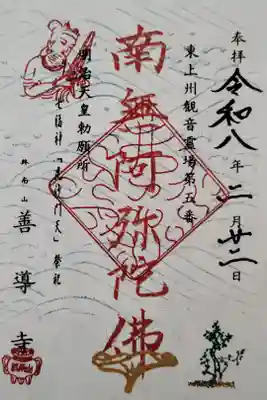 奉拝 令和八年二月廿二日
東上州観音霊場第五番
南無阿弥陀佛
明治天皇勅願所
七福神「毘沙門天」祭祀
終南山 善導寺